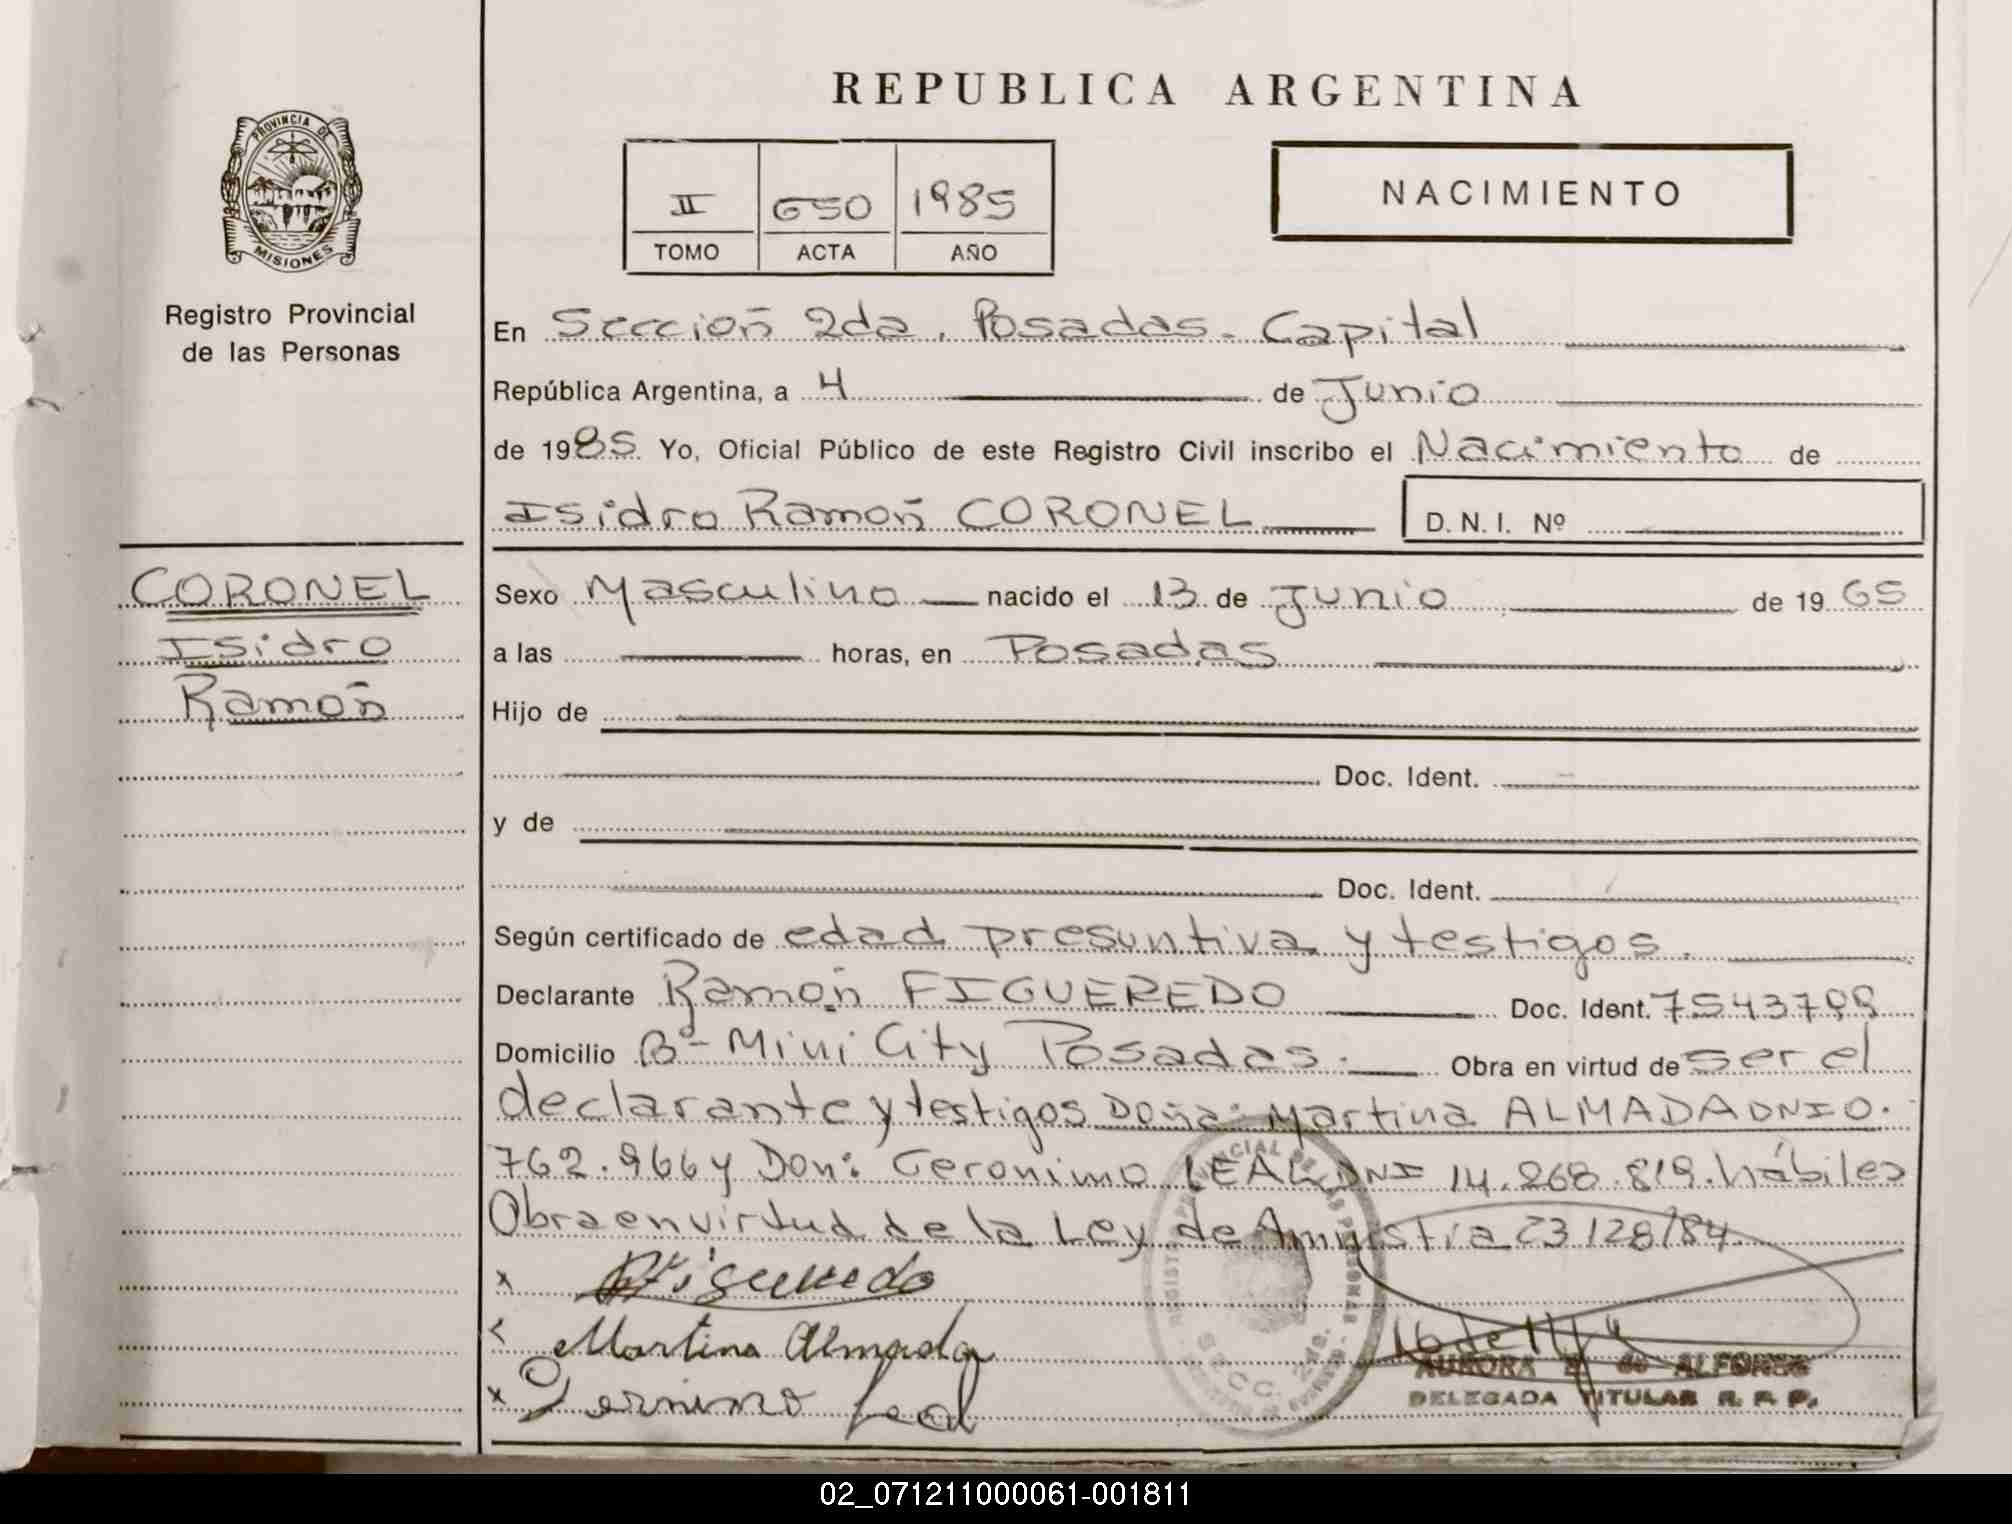 REPUBLICA ARGENTINA
PROVINCIA DE
MISIONES
Registro Provincial
de las Personas
II 650 1985
TOMO ACTA AÑO
NACIMIENTO
En Sección 2da. Posadas - Capital
República Argentina, a 4 de Junio
de 1985 Yo, Oficial Público de este Registro Civil inscribo el Nacimiento de
Isidro Ramón CORONEL D. N. I. Nº
CORONEL
Isidro
Ramón
Sexo Masculino nacido el 13 de Junio de 1965
a las horas, en Posadas
Hijo de
Doc. Ident.
y de
Doc. Ident.
Según certificado de edad presuntiva y testigos.
Declarante Ramón FIGUEREDO Doc. Ident. 7543799
Domicilio Bº - Mini City Posadas. Obra en virtud de ser el
declarante y testigos Doña: Martina ALMADA DNI 0.
762.966 y Don: Geronimo LEAL DNI 14.268.819. hábiles
Obra en virtud de la Ley de Amnistia 23128/84
x Figueredo
Martina Almada
x Gernimo Leal
SECC. 2da.
AURORA de ALFONSO
DELEGADA TITULAR R. P. P.
02_071211000061-001811